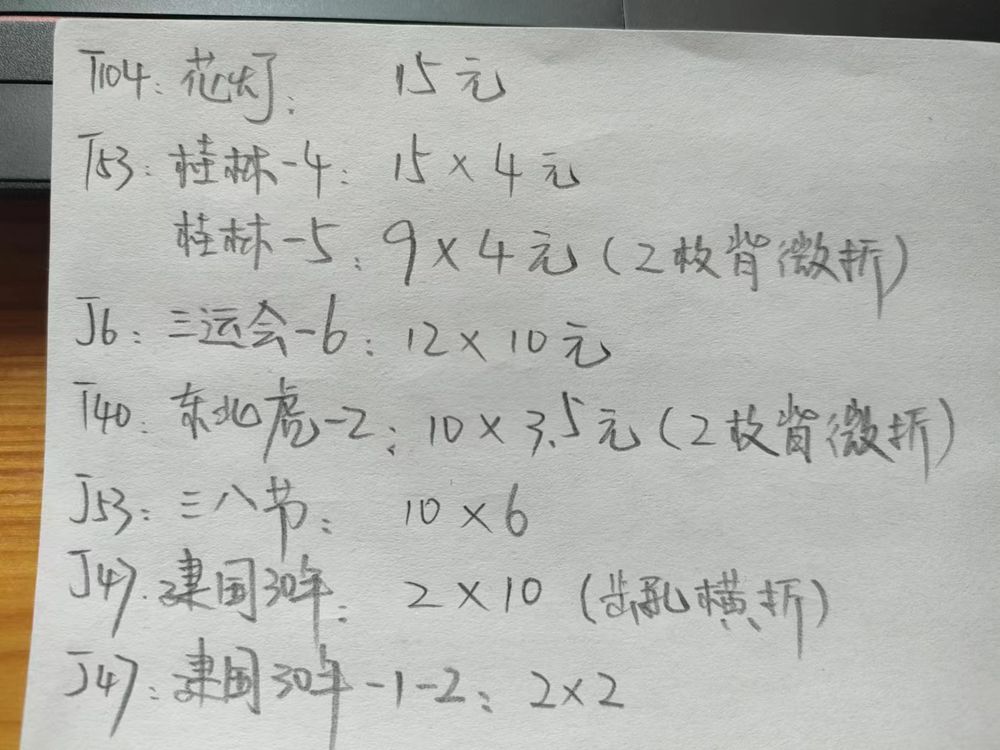 T104: 花灯: 15元
T53: 桂林-4: 15×4元
桂林-5: 9×4元(2枚背微折)
J6: 三运会-6: 12×10元
T40: 东北虎-2: 10×3.5元(2枚背微折)
J53: 三八节: 10×6
J47: 建国30年: 2×10 (齿孔横折)
J47: 建国30年-1-2: 2×2